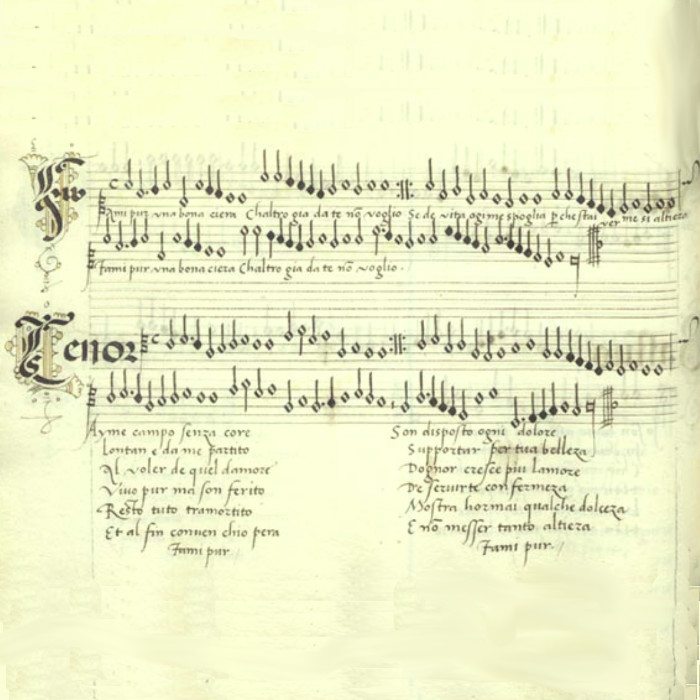 Fami pur vna bona ciera Chaltro gia da te nõ voglio Se de vita ogi me spoglia ꝑ che stai ver me si altiera
Fami pur vna bona ciera Chaltro gia da te nõ voglio.
Tenor
Ayme campo senza core
Lontan e da me partito
Al voler de quel damore
Viuo pur ma son ferito
Resto tuto tramortito
Et al fin conuen chio pera
Fami pur
Son disposto ogni dolore
Supportar per tua belleza
Dognor cresce piu lamore
De seruirte con fermeza
Mostra hormai qualche dolceza
E nõ messer tanto altiera
Fami pur.